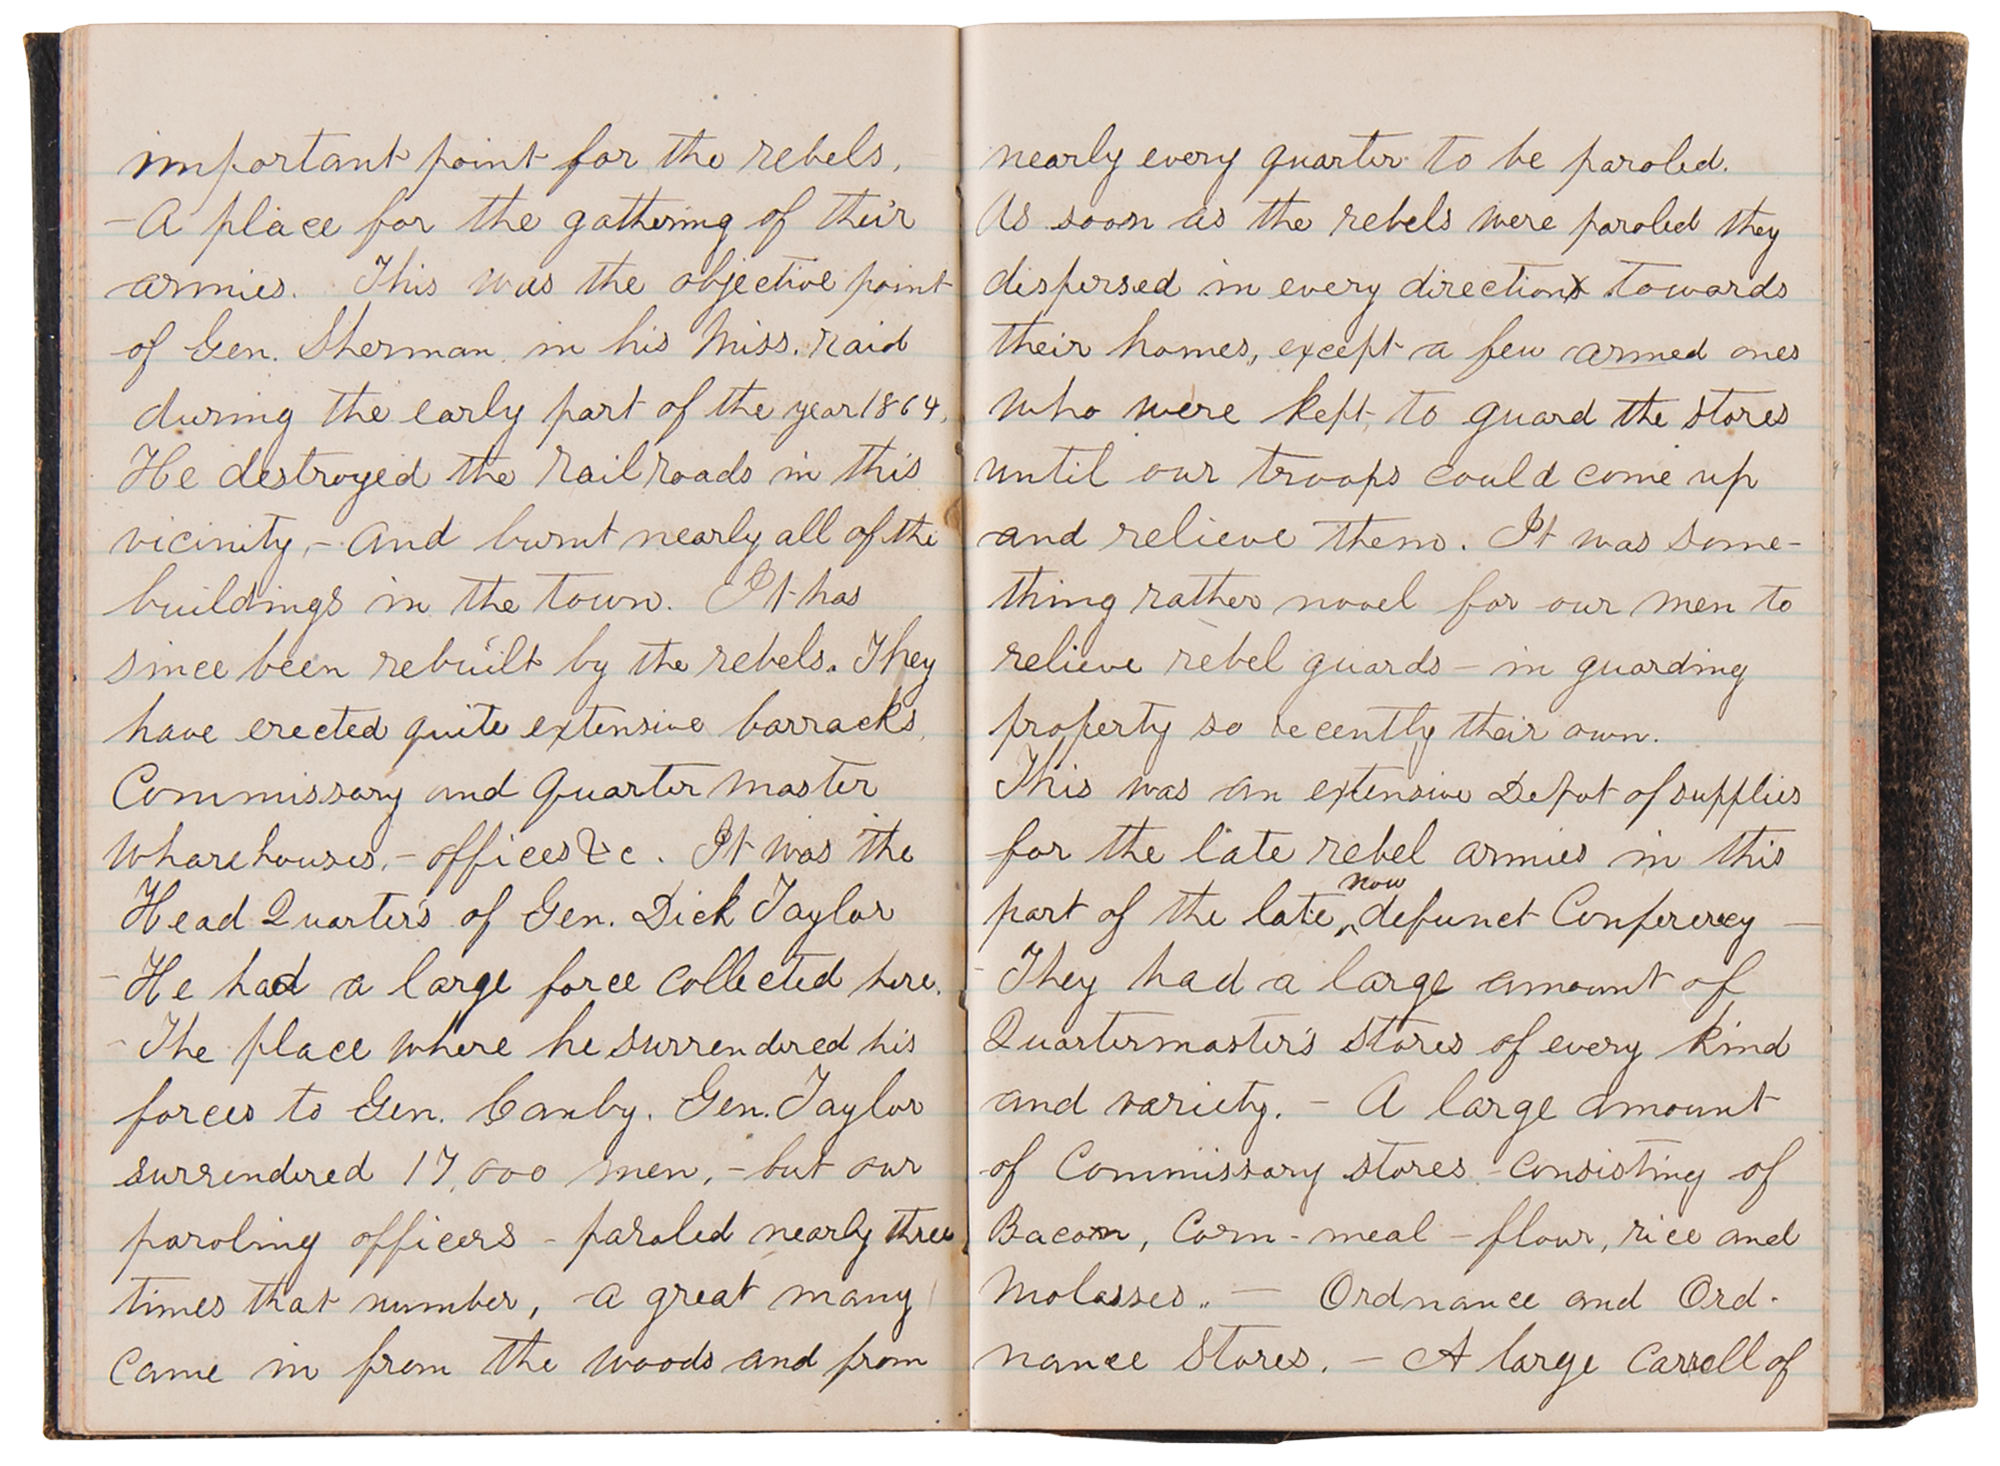 important point for the rebels.
- A place for the gathering of their
armies. This was the objective point
of Gen. Sherman in his Miss. raid
during the early part of the year 1864.
He destroyed the railroads in this
vicinity, - and burnt nearly all of the
buildings in the town. It has
since been rebuilt by the rebels. They
have erected quite extensive barracks,
Commissary and Quarter Master
wharehouses, - offices &c. It was the
Head Quarters of Gen. Dick Taylor
- He had a large force collected here.
- The place where he surrendered his
forces to Gen. Canby. Gen. Taylor
surrendered 17,000 men, - but our
paroling officers - paroled nearly three
times that number, - a great many
came in from the woods and from
nearly every quarter to be paroled.
As soon as the rebels were paroled they
dispersed in every direction towards
their homes, except a few armed ones
who were kept, to guard the stores
until our troops could come up
and relieve them. It was some-
thing rather novel for our men to
relieve rebel guards - in guarding
property so recently their own.
This was an extensive Depot of supplies
for the late rebel armies in this
part of the late, now defunct Conferercy -
- They had a large amount of
Quartermaster's stores of every kind
and variety. - A large amount
of Commissary stores - consisting of
Bacon, Corn-meal - flour, rice and
Molasses. - Ordnance and Ord-
nance Stores. - A large Carroll of